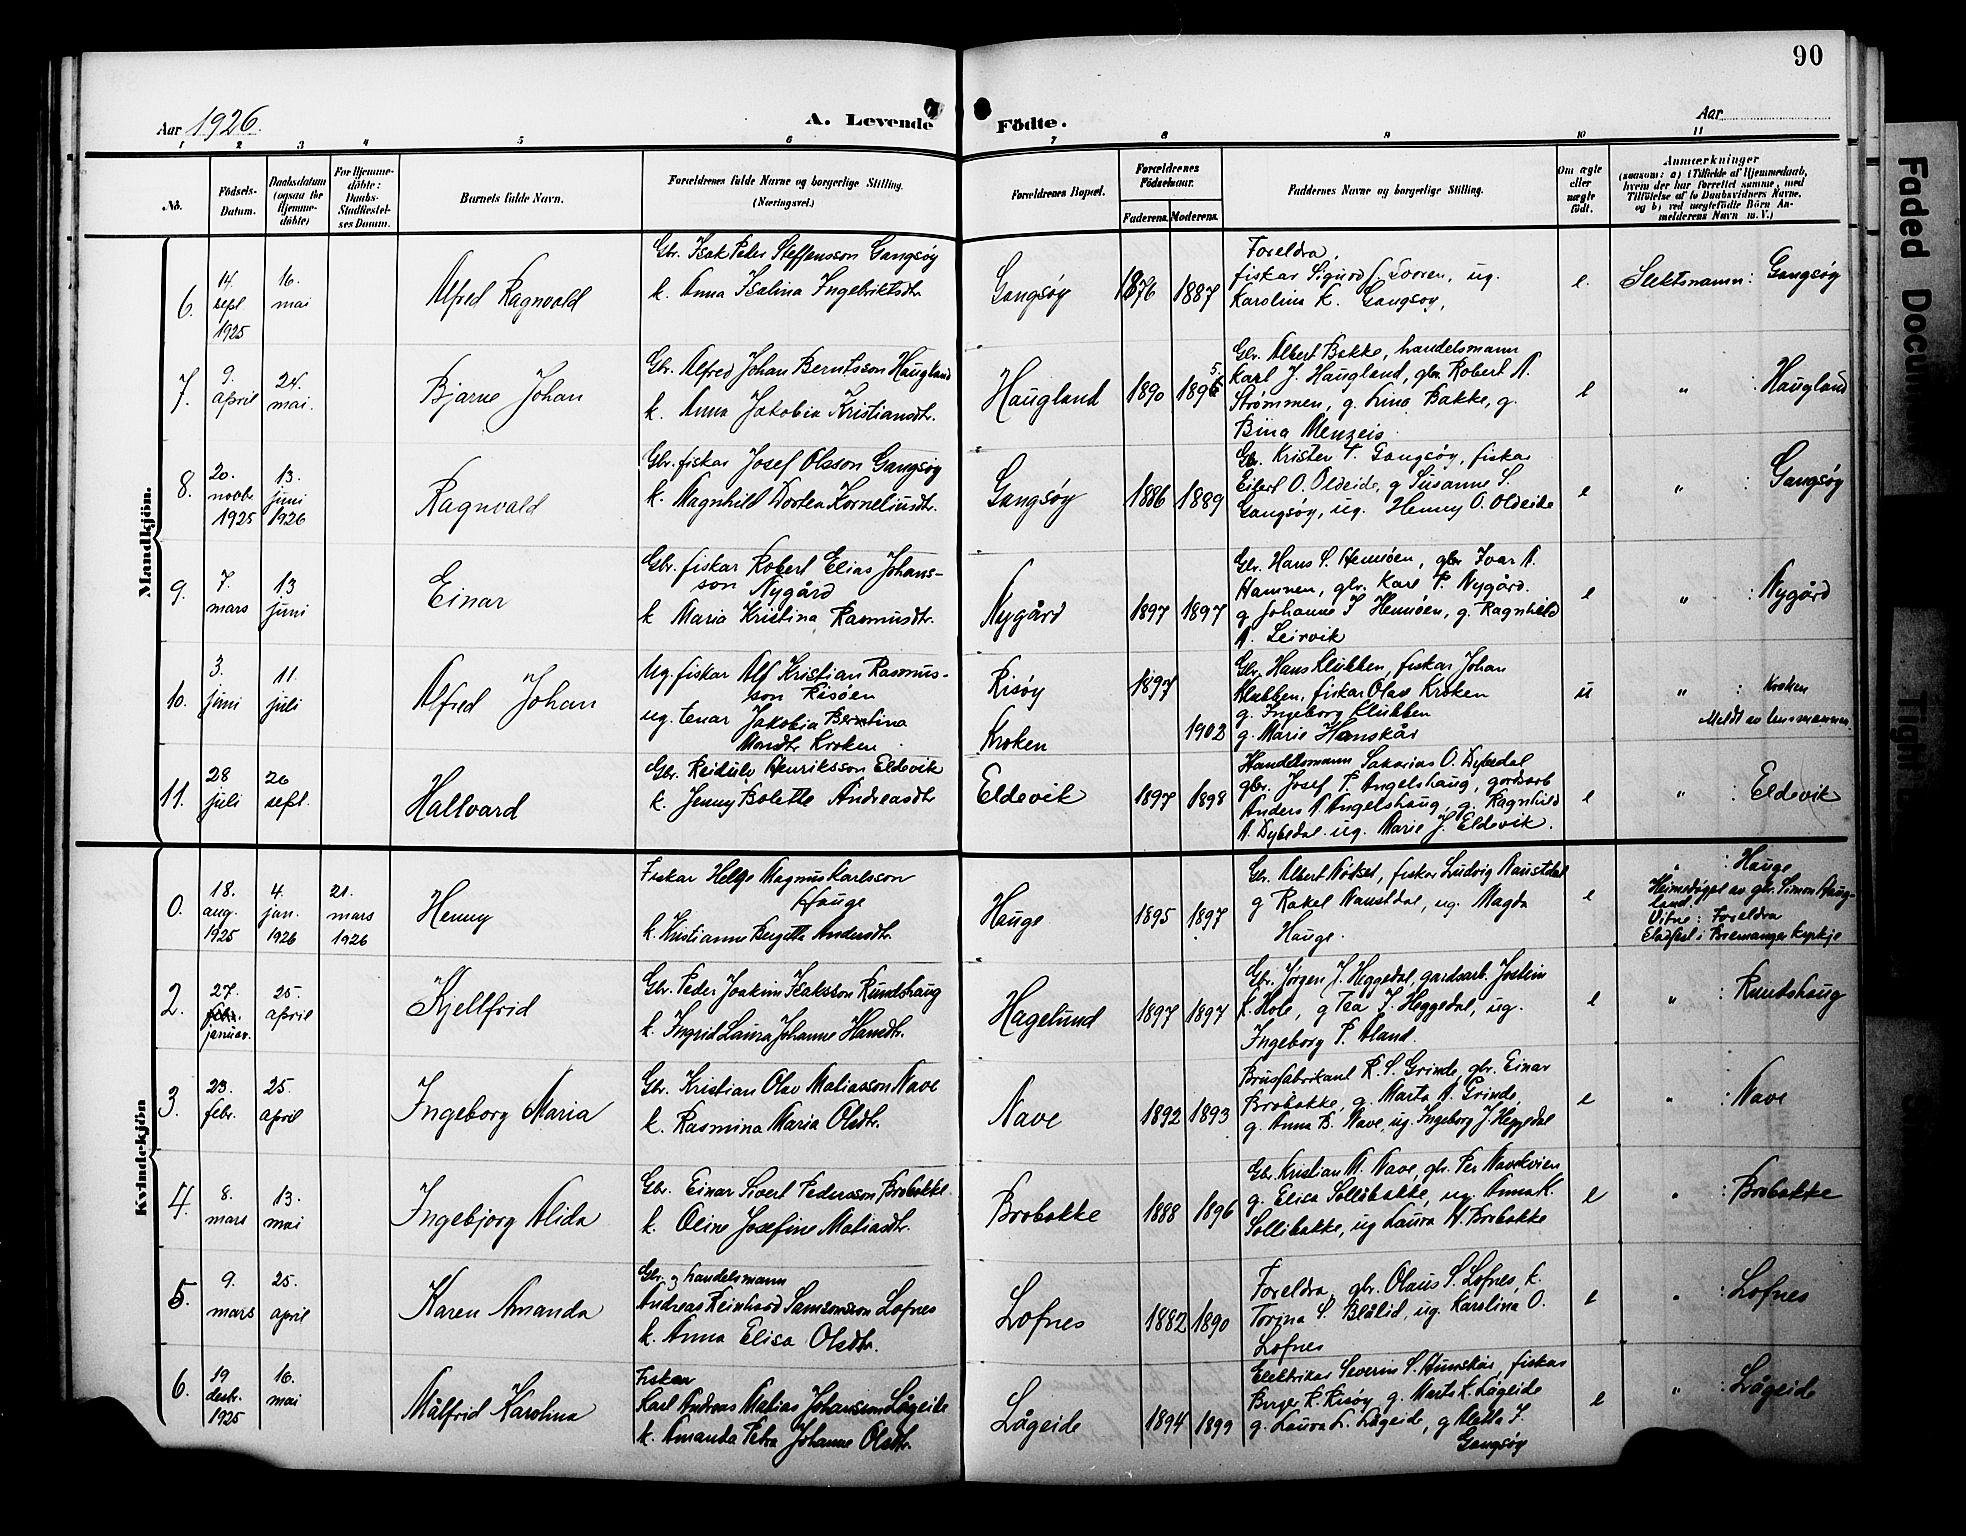 90
Aar 1926.
A. Levende Födte.
Aar
1 2 3 4 5 6 7 8 9 10 11
No.
Födsels-Datum.
Daabsdatum (ogsaa for Hjemme-döbte)
For Hjemme-döbte: Daabs-Stadfæstel-ses Datum.
Barnets fulde Navn.
Forældrenes fulde Navne og borgerlige Stilling. (Næringsvei.)
Forældrenes Bopæl.
Forældrenes Födselsaar.
Faderens. Moderens.
Faddernes Navne og borgerlige Stilling.
Om ægte eller uægte födt.
Anmærkninger
(saasom: a) i Tilfælde af Hjemmedaab,
hvem der har forrettet samme, med
Tilföielse af to Daabsvidners Navne,
og b) ved uægtefödte Börn An-
melderens Navn m. V.)
Mandkjön.
6. 14. sept. 1925
16. mai
Alfred Ragnvald
Gbr. Isak Peder Steffensson Gangsøy
k. Anna Isalina Ingebriktsdtr.
Gangsøy 1876 1887
Foreldra,
fiskar Sigurd J. ug.
Karolina K. Gangsøy,
e. Slektsnamn: Gangsøy
7. 9. april
24. mai.
Bjarne Johan
Gbr. Alfred Johan Berntsson Haugland
k. Anna Jakobia Kristiansdtr.
Haugland 1890 1895
Gbr. Albert Bakke, handelsmann
Karl J. Haugland, gbr. Robert A.
Strømmen, g. Lina Bakke, g.
Bina
e " : Haugland
8. 20. novbr. 1925
13. juni 1926
Ragnvald
Gbr. fiskar Josef Olsson Gangsøy
k. Magnhild Dortea Korneliusdtr.
Gangsøy 1886 1889
Gbr. Krister T. Gangsøy, fiskar
Eilert O. Oldeide, g Susanne S.
Gangsøy, ug. Henny O. Oldeide
e " : Gangsøy
9. 7. mars
13 juni
Einar
Gbr. fiskar Robert Elias Johans-
son Nygård
k Maria Kristina Rasmusdtr.
Nygård 1897 1897
Gbr. Hans S. Hennøen, gbr Ivar A.
Hamnen, gbr. Karl P. Nygård.
g Johanne I Hennøen, g. Ragnhild
A. Leirvik
e " : Nygård
10. 3. juni
11. juli
Alfred Johan
Ug. fiskar Alf Kristian Rasmus-
son Risøen
ug. tenar Jakobia Berntina
Kroken
Risøy 1897
Kroken 1902
Gbr. Hans Klubben, fiskar Johan
Klubben, fiskar Olav Kroken
g. Ingeborg Klubben
g. Marie Hanskår
u " : Kroken
Meldt av lensmannen
11. 28 juli
26 sept.
Hallvard
Gbr. Reidulv Henriksson Eldevik
k. Jenny Bolette Andreasdtr
Eldevik 1897 1898
Handelsmann Sakarias O. Dybedal
gbr. Josef P. Angelshaug, gardsarb
Anders A Angelshaug, g. Ragnhild
A. Dybedal. ug. Marie J. Eldevik.
e " : Eldevik
Kvindekjön
0. 18. aug. 1925
4. jan. 1926
21. mars 1926
Henny
Fiskar Helge Magnus Karlsson
Hauge
k. Kristianne Bergitta Andersdtr.
Hauge 1895 1897
Gbr. Albert Nødset, fiskar Ludvig Naustdal
g Rakel Naustdal, ug. Magda
Hauge.
e " : Hauge
Heimedøypt av gbr. Simon Haug-
land.
Vitne: Foreldra
Stadfest i Bremanger kyrkje
2. 27. januar.
25. april
Kjellfrid
Gbr. Peder Joakim Isaksson Rundshaug
k. Ingrid Laura Johanne Hansdtr.
Hagelund 1897 1897
Gbr. Jørgen J. Heggedal, gardsarb. Jostein
K. Hole, g Tea J. Heggedal, ug.
Ingeborg P. Åland.
e " : Rundshaug
3. 23. febr.
25. april
Ingeborg Maria
Gbr. Kristian Olav Matiasson Nave
k. Rasmina Maria Olsdtr.
Nave 1892 1893
Brusfabrikant R. S. Grinde, gbr. Einar
Brobakke, g. Marta A. Grinde,
g. Anna B. Nave, ug. Ingeborg J. Heggedal
e " : Nave
4. 8. mars
13. mai
Ingebjorg Alida
Gbr. Einar Sivert Pedersson Brobakke
k. Oline Josefine Matiasdtr.
Brobakke 1888 1896
Gbr. Kristian M. Nave, gbr. Per
g. Elisa Sollibakke, ug. Anna K.
Sollibakke, ug Laura H. Brobakke
e " : Brobakke
5. 9. mars
25. april
Karen Amanda
Gbr. og handelsmann
Andreas Reinhard Samsonson Lofnes
k. Anna Elisa Olsdtr.
Lofnes 1882 1890
Foreldra, gbr. Olaus S. Lofnes, k.
Torina S. Blålid, ug. Karolina O.
Lofnes
e " : Lofnes
6. 19 desbr. 1925
16. mai
Målfrid Karolina
Fiskar
Karl Andreas Matias Johanson Lågeide
k. Amanda Petra Johanne Olsdtr.
Lågeide 1894 1899
Elektriker Severin S. fiskar
Birger R. Risøy g. Marta K. Lågeide
g. Laura L. Lågeide, g J.
Gangsøy
e " : Lågeide
Faded Document
Tight